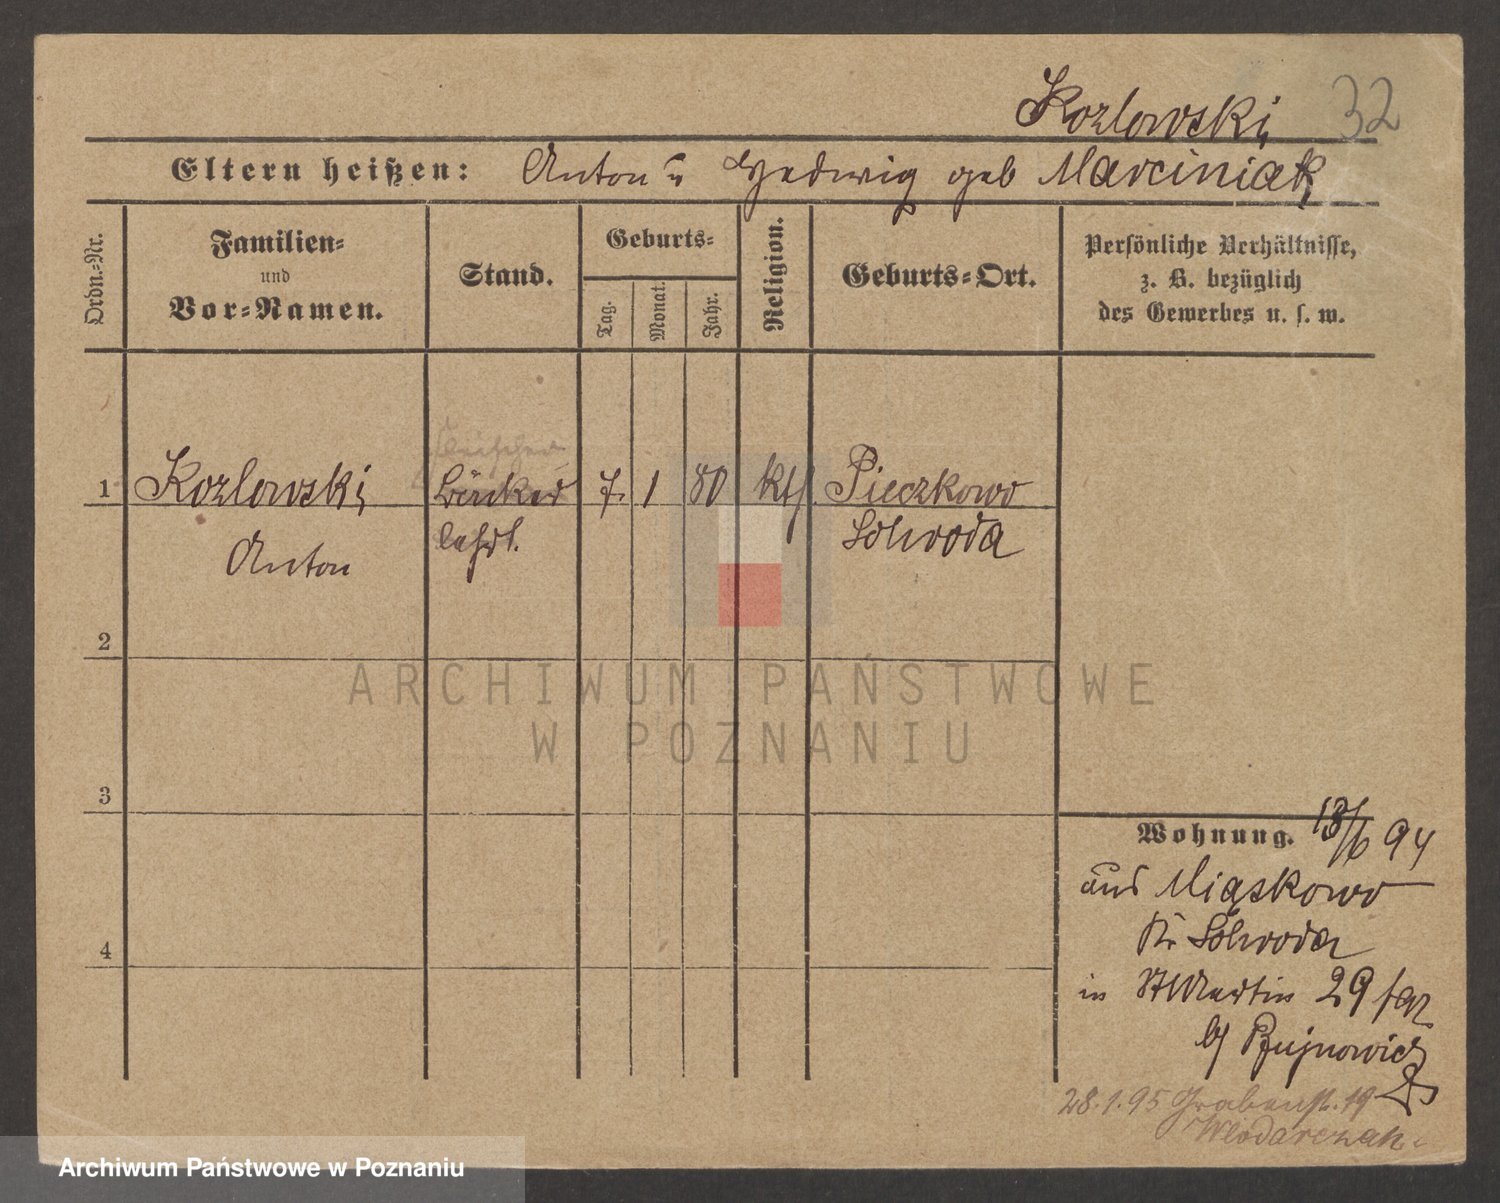 Kozlowski, 32
Eltern heißen: Anton u Hedwig geb Marciniak
Ordn.-Nr.
Familien-
und
Vor-Namen.
Stand.
Geburts-
Tag.
Monat.
Jahr.
Religion.
Geburts-Ort.
Persönliche Verhältnisse,
z. B. bezüglich
des Gewerbes u. s. w.
1 Kozlowski, Bäcker 7. 1 80 kth. Pieczkowo
Anton lehrl. Schroda
2
ARCHIWUM PAŃSTWOWE
W POZNANIU
3
Wohnung. 13/6 94
aus Miąskowo
Kr Schroda
in St Martin 29
b/
4
28.1.95 Grabenstr. 19
Wlodarczak.
Archiwum Państwowe w Poznaniu